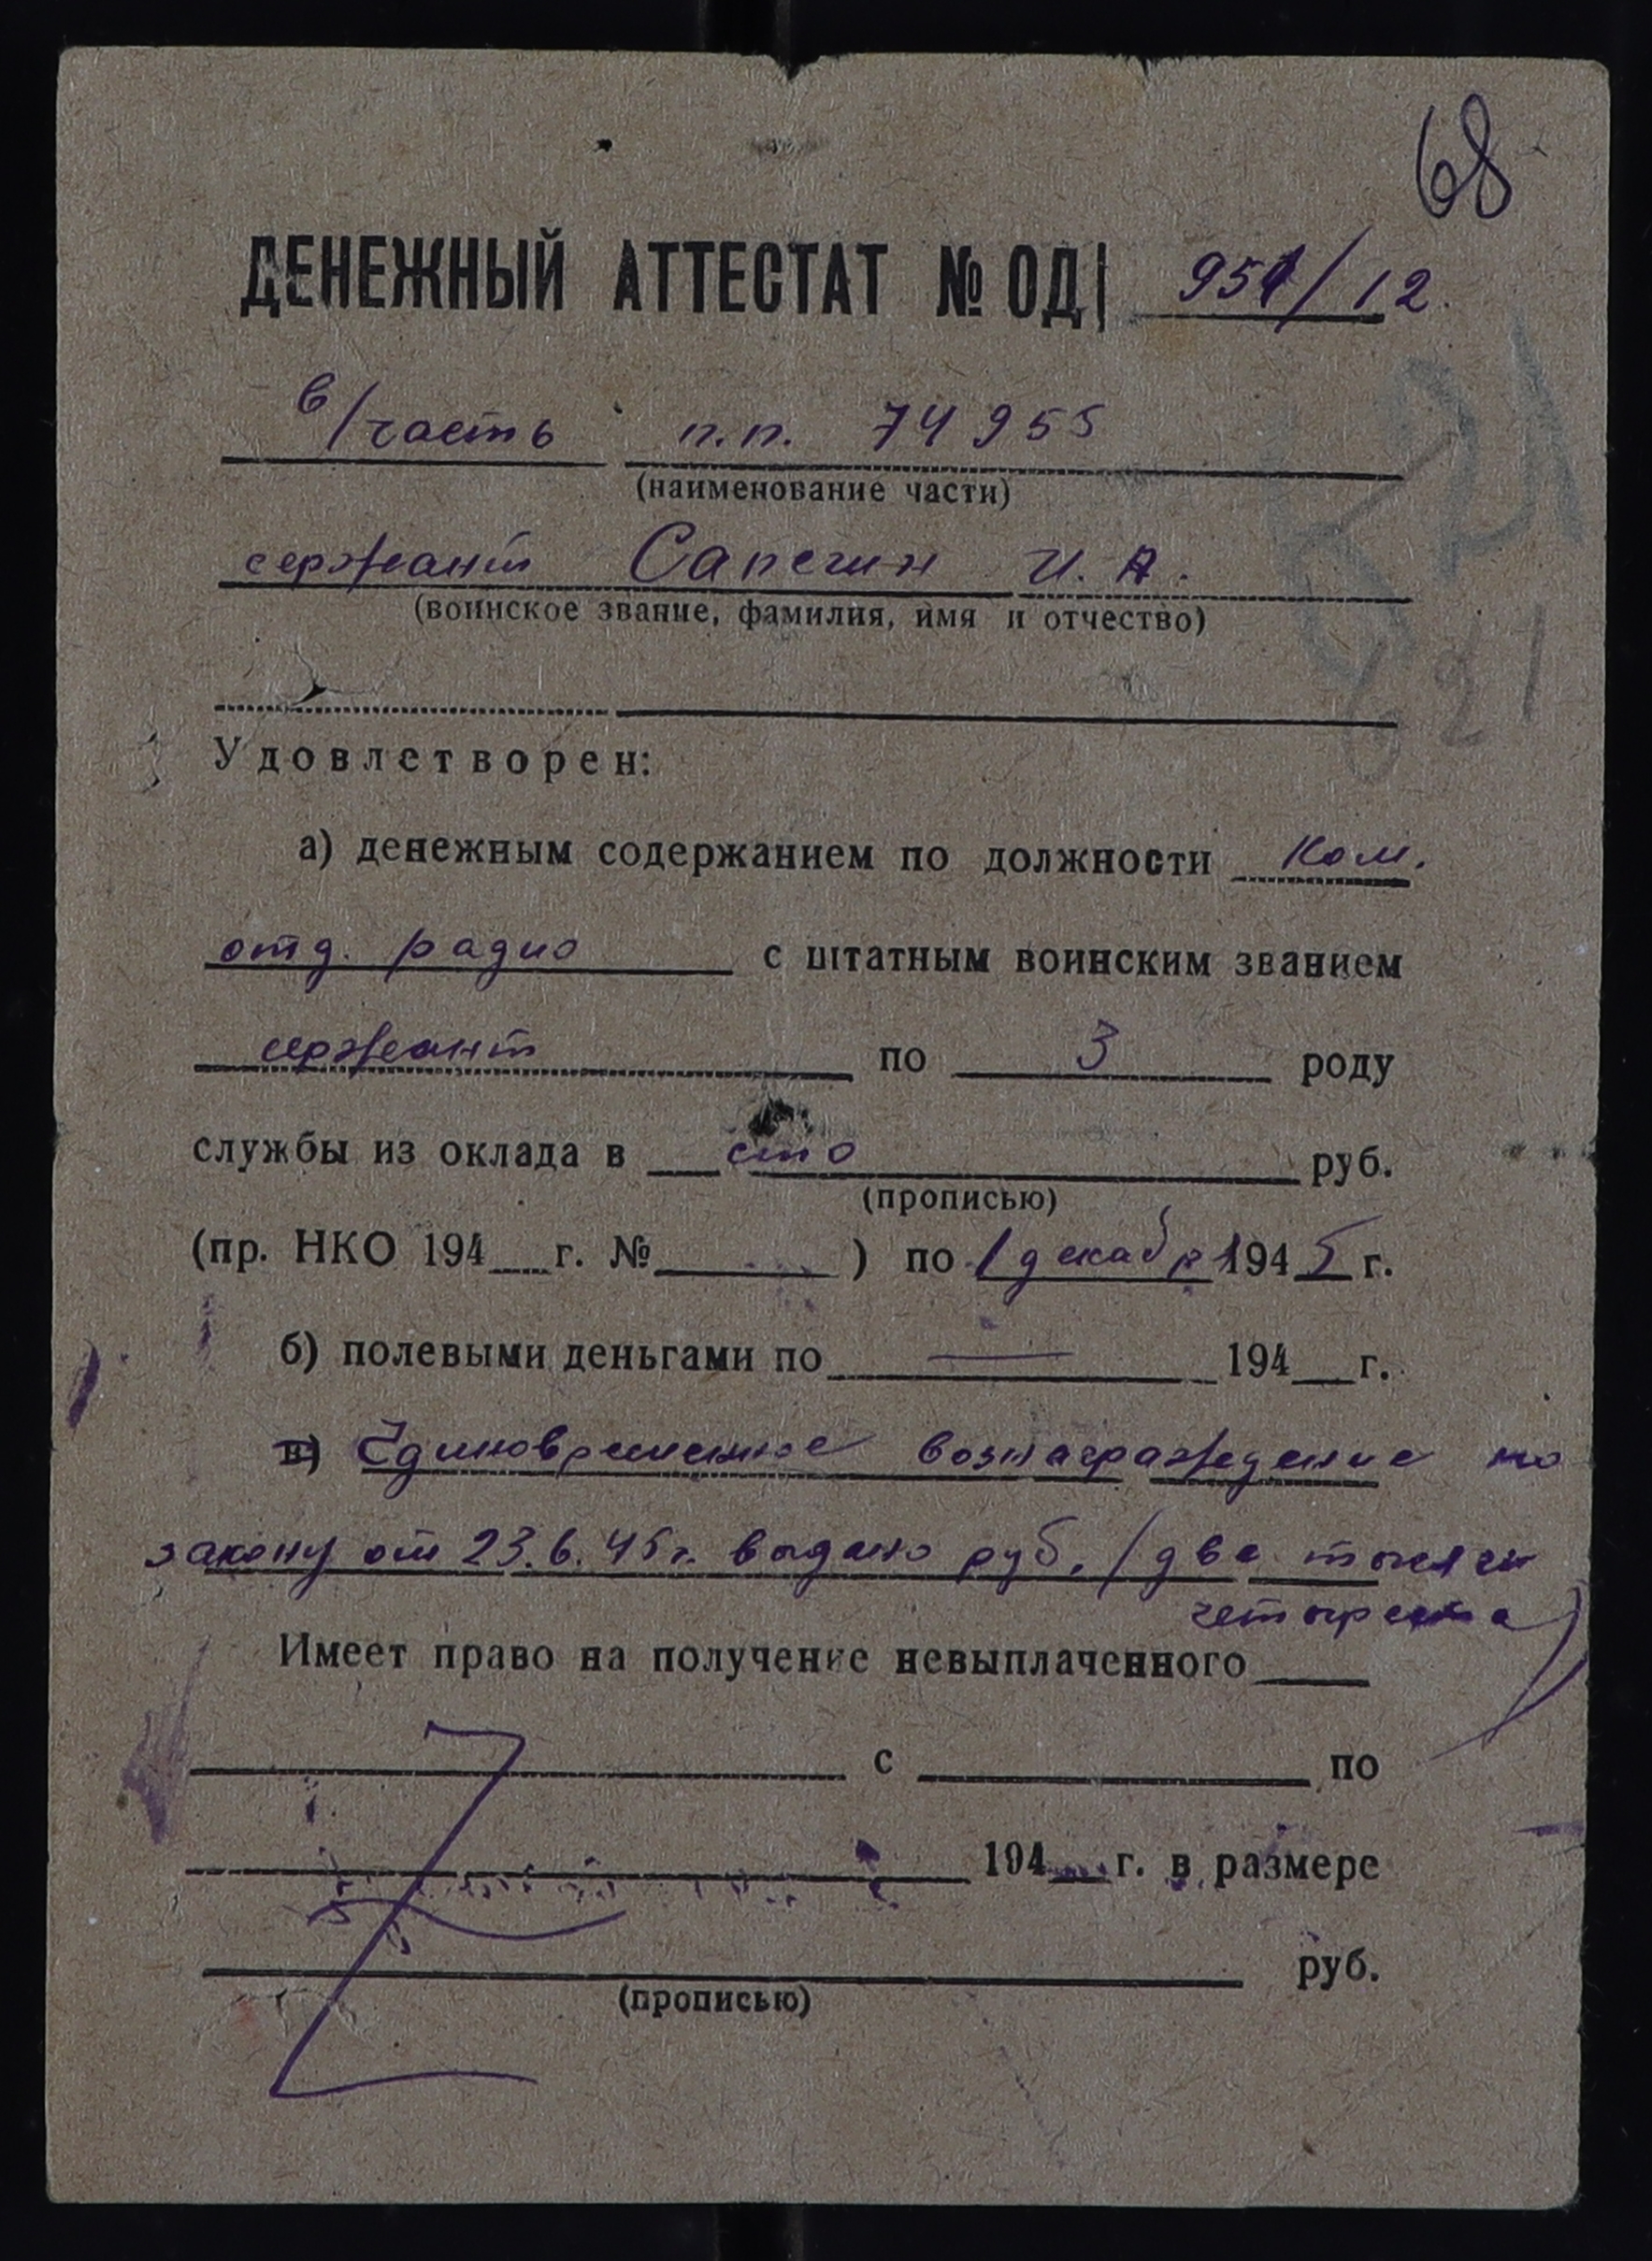 68
ДЕНЕЖНЫЙ АТТЕСТАТ № ОД| 951/12.
в/часть п.п. 74955
(наименование части)
сержант Сапегин И. А.
(воинское звание, фамилия, имя и отчество)
621
Удовлетворен:
а) денежным содержанием по должности ком.
отд. радио с штатным воинским званием
сержант по 3 роду
службы из оклада в сто руб.
(прописью)
(пр. НКО 194 г. № ) по 1 декабря 1945 г.
б) полевыми деньгами по — 194 г.
в) Единовременное вознаграждение по
закону от 23.6.45г. выдано руб. (две тысячи
четыреста)
Имеет право на получение невыплаченного
с по
194 г. в размере
руб.
(прописью)